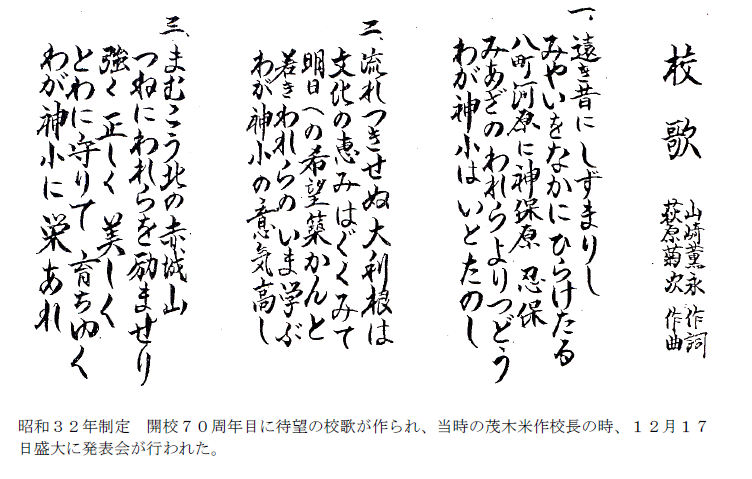 校歌
山崎薫永 作詞
萩原菊次 作曲
一、遠き昔にしずまりし
みやいをなかにひらけたる
八町河原に神保原 忍保
みあざのわれらよりつどう
わが神小はいとたのし
二、流れつきせぬ大利根は
文化の恵みはぐくみて
明日への希望築かんと
若きわれらのいま学ぶ
わが神小の意気高し
三、まむこう北の赤城山
つねにわれらを励ませり
強く 正しく 美しく
とわに守りて 育ちゆく
わが神小に栄あれ
昭和32年制定 開校70周年目に待望の校歌が作られ、当時の茂木米作校長の時、12月17
日盛大に発表会が行われた。